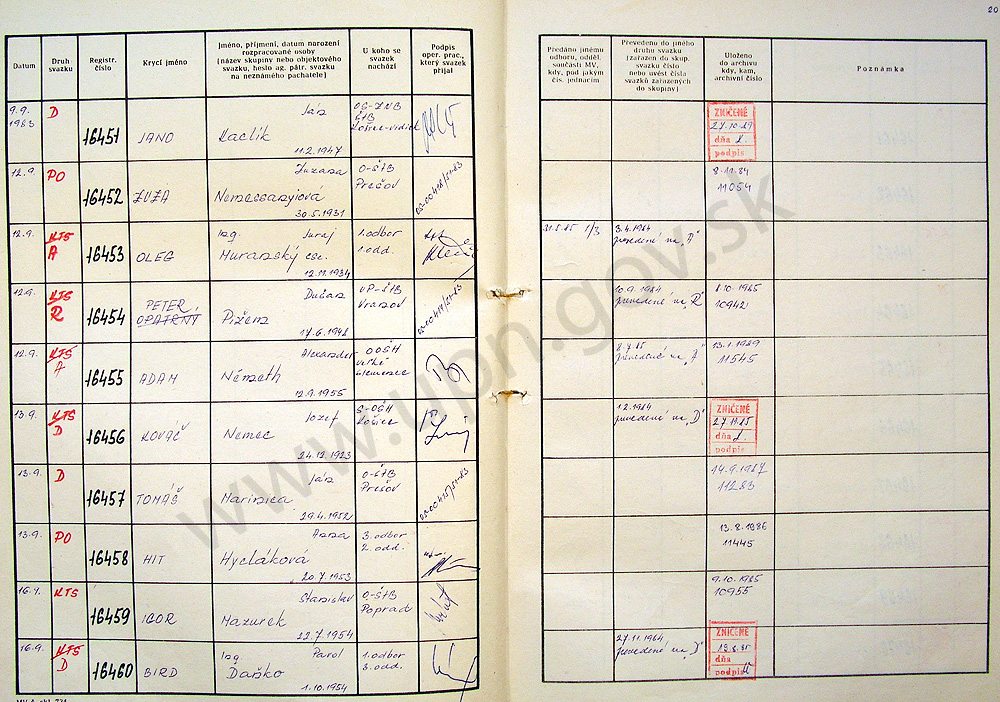 20
Datum
Druh svazku
Registr. číslo
Krycí jméno
Jméno, příjmení, datum narození rozpracované osoby (název skupiny nebo objektového svazku, heslo ag. pátr. svazku na neznámého pachatele)
U koho se svazek nachází
Podpis oper. prac., který svazek přijal
Předáno jinému odboru, odděl. součásti MV, kdy, pod jakým čís. jednacím
Převedeno do jiného druhu svazku (zařazen do skup. svazku číslo nebo uvést čísla svazků zařazených do skupiny)
Uloženo do archivu kdy, kam, archivní číslo
Poznámka
9.9. 1983 D 16451 JANO Ján Kaclík 11.2.1947 OS-ZNB ŠtB Košice-vidiek
ZNIČENÉ 27.10.89 dňa podpis
12.9. PO 16452 ZUZA Zuzana Nemessanyiová 30.5.1931 O-ŠtB Prešov
8.11.84 11054
12.9. KTS A 16453 OLEG Ing. Juraj Muranský csc. 12.11.1934 1.odbor 1.odd.
31.5.85 1/3 3.4.1984 prevedené na „A"
12.9. KTS R 16454 PETER OPATRNÝ Dušan Pižem 17.6.1948 OP-ŠtB Vranov
10.9.1984 prevedené na „R" 8.10.1985 10942
12.9. KTS A 16455 ADAM Alexander Németh 12.9.1955 OOŠH Veľké Slemence
prevedené na „A" 13.1.1989 11545
13.9. KTS D 16456 KOVÁČ Jozef Nemec 24.12.1923 S-OŠH Košice
1.2.1984 prevedené na „D" ZNIČENÉ 27.11.85 dňa podpis
13.9. D 16457 TOMÁŠ Ján Marinica 29.4.1952 O-ŠtB Prešov
14.9.1987 11283
13.9. PO 16458 HIT Anna Hycláková 20.7.1953 3.odbor 2.odd.
13.8.1986 11445
16.9. KTS 16459 IGOR Stanislav Mazurek 22.7.1954 O-ŠtB Poprad
9.10.1985 10955
16.9. KTS D 16460 BIRD Ing. Pavol Daňko 1.10.1954 1.odbor 3.odd.
27.11.1984 prevedené na „D" ZNIČENÉ dňa podpis
www.upn.gov.sk